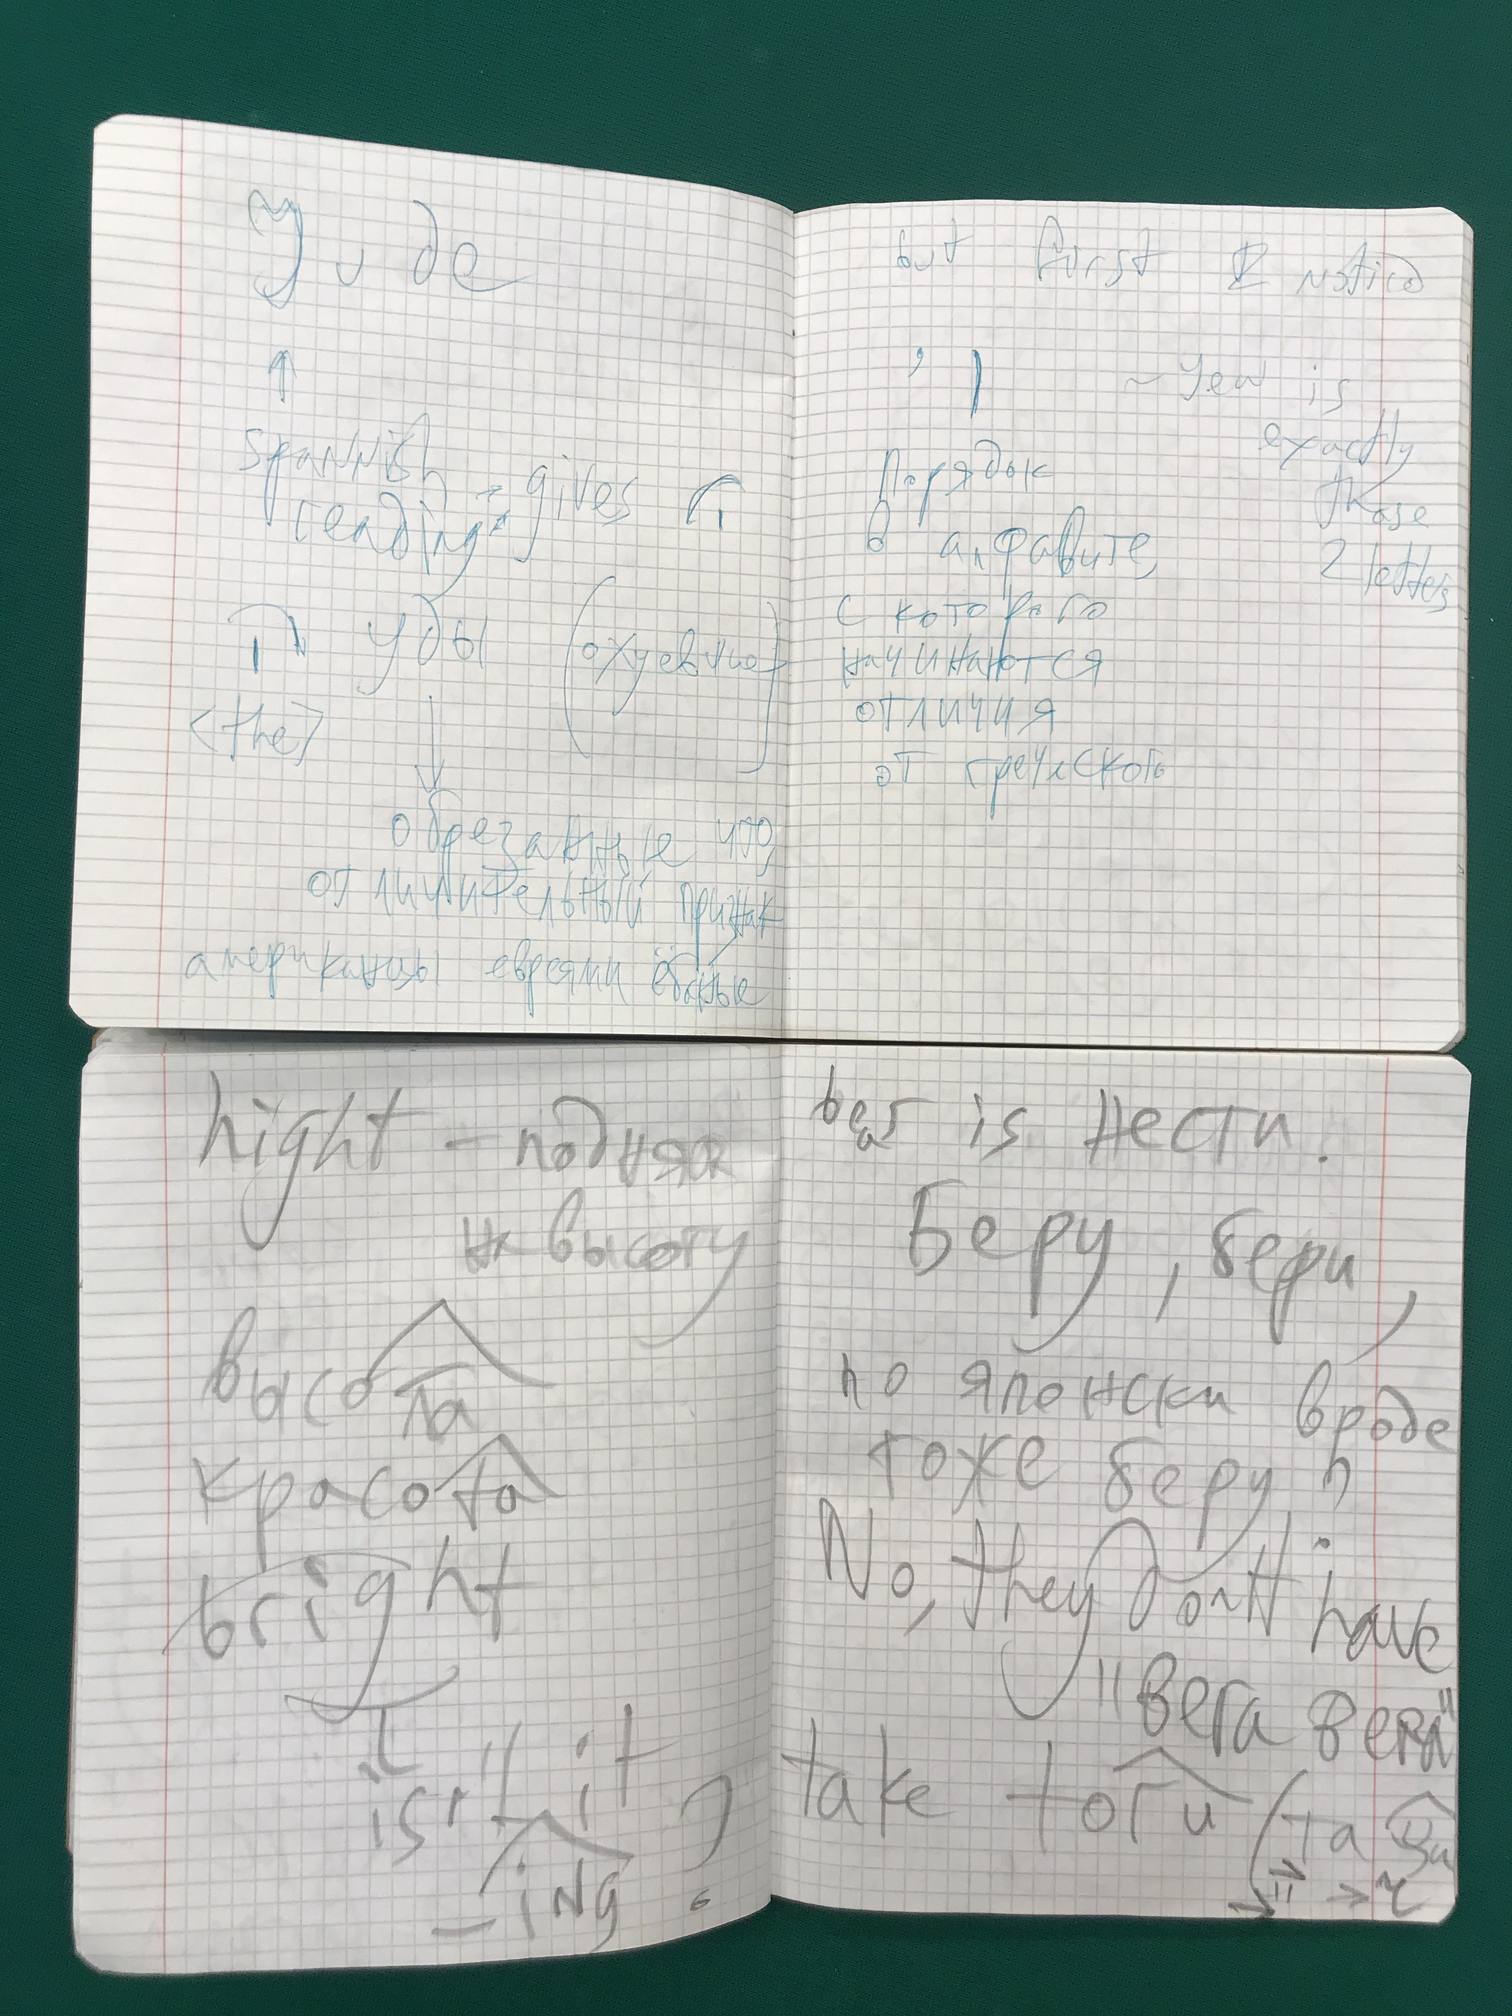 Jude
↑
spannish
reading → gives ח
ח уды (охуевшие)
<the>
обрезанные что,
отличительный признак
американцы евреями ёбаные
but first I notice
' ן ~ Jew is
exactly
those
2 letters
Порядок
в алфавите,
с которого
начинаются
отличия
от греческого
hight - подняж
на высоту
высота
красота
bright
isn't it
-ing ?
bear is нести.
Беру, бери,
по японски вроде
тоже беру?
No, they don't have
"вега
take toru (та